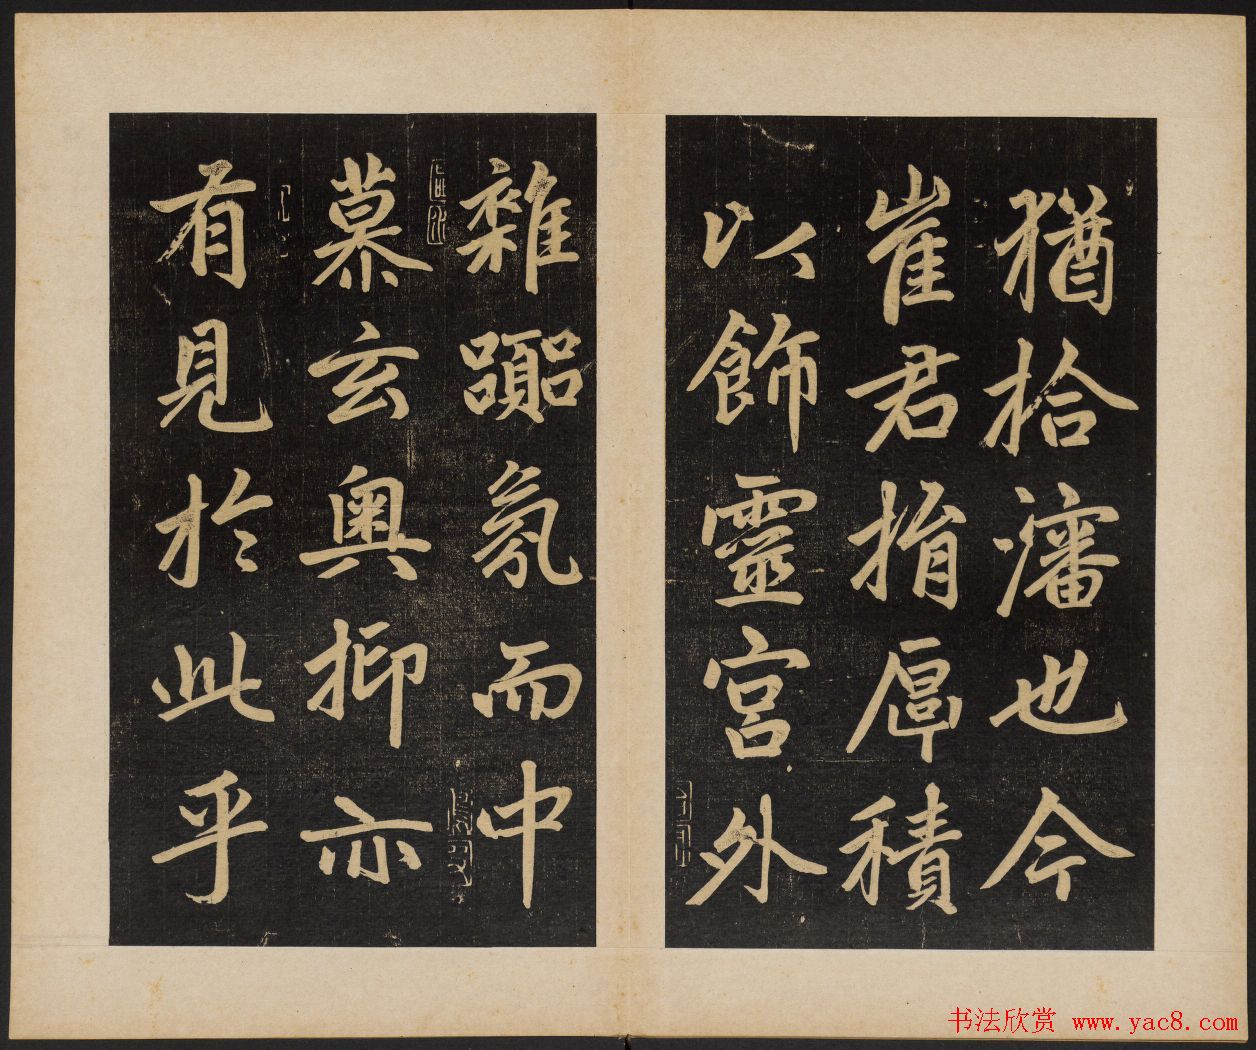 猶拾瀋也今
崔君捐厚積
以飾靈宮外
雜囂氛而中
慕玄奧抑亦
有見於此乎
书法欣赏 www.yac8.com